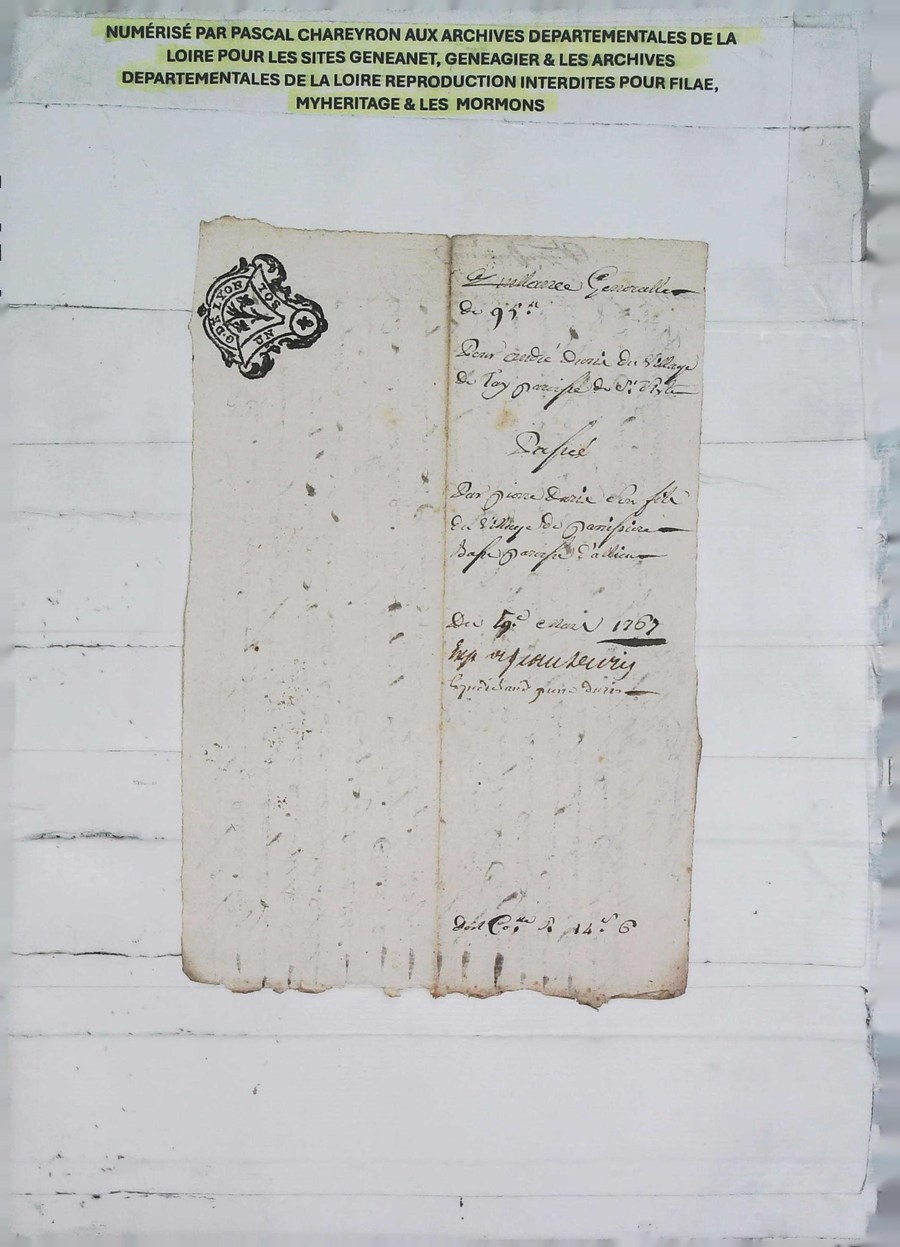 NUMÉRISÉ PAR PASCAL CHAREYRON AUX ARCHIVES DEPARTEMENTALES DE LA
LOIRE POUR LES SITES GENEANET, GENEAGIER & LES ARCHIVES
DEPARTEMENTALES DE LA LOIRE REPRODUCTION INTERDITES POUR FILAE,
MYHERITAGE & LES MORMONS
G. DE LYON
UN SOL
Quittance Generalle
de 95
Pour andré Durie du Village
de Tay paroisse de St
Passé
Par pierre Durie son fils
du Village de
Basse paroisse
Du 19e Mars 1767
Exp
Expedié aud pierre durie
14 s 6